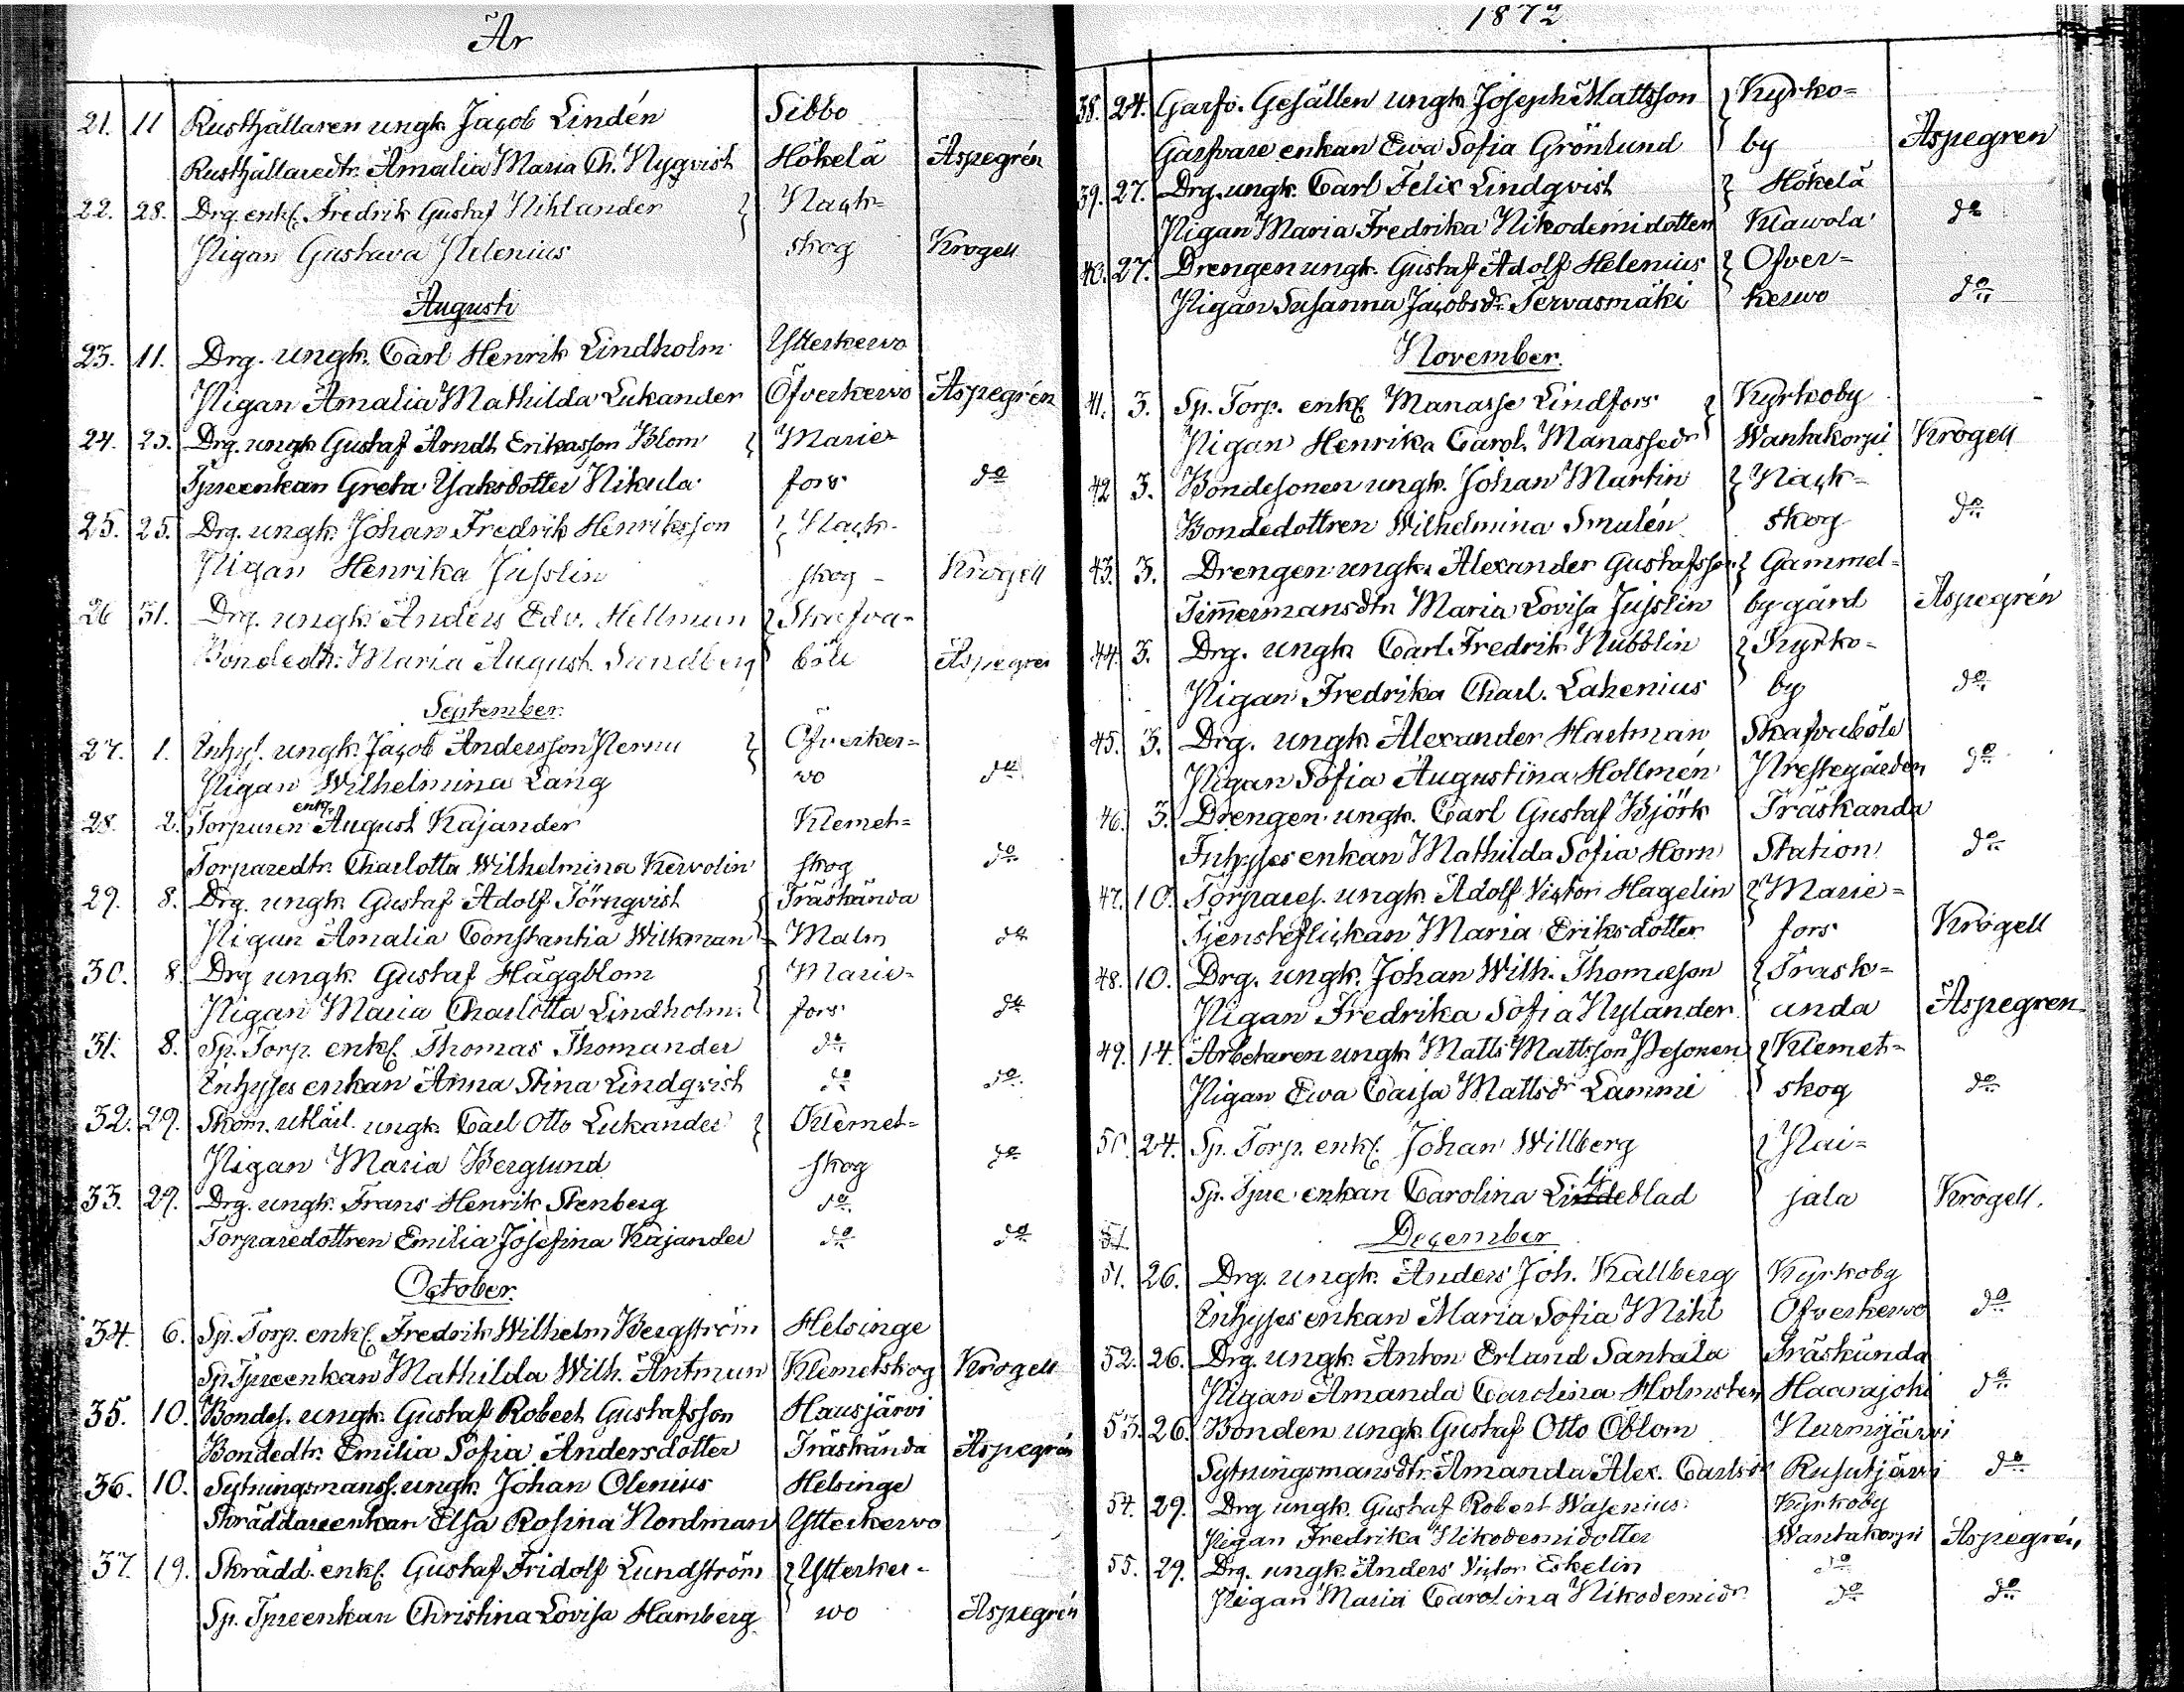 År
21. 11 Rusthållaren ungk. Jacob Lindén Sibbo
Rusthållaredtr. Amalia Maria Ch. Nyqvist Hökelä Aspegrén
22. 28. Drg. enkl. Fredrik Gustaf Nihlander Nack-
Pigan Gustava Helenius skog Krogell
Augusti
23. 11. Drg. ungk. Carl Henrik Lindholm Ytterkervo
Pigan Amalia Mathilda Lukander Öfverkervo Aspegrén
24. 25. Drg. ungk. Gustaf Arndt Eriksson Blom Marie-
Tpreenkan Greta Isaksdotter Nikula fors do
25. 25. Drg. ungk. Johan Fredrik Henriksson Nack-
Pigan Henrika Juslin skog - Krogell
26 31. Drg. ungk. Anders Edv. Hellman Skafva-
Bondedtr. Maria August. Sundberg böle Aspegren
September.
27. 1. Inhys. ungk. Jacob Andersson Nernu Öfverker-
Pigan Wilhelmina Lang vo do
28. 2. Torparen enkl. August Kajander Klemet-
Torparedtr. Charlotta Wilhelmina Kervolin skog do
29. 8. Drg. ungk. Gustaf Adolf Törnqvist Träskända
Pigan Amalia Constantia Wilkman Malm do
30. 8. Drg ungk. Gustaf Häggblom Marie-
Pigan Maria Charlotta Lindholm. fors do
31. 8. Sp. Torp. enkl. Thomas Thomander do
Inhyses enkan Anna Stina Lindqvist do do
32. 29. Skom. ungk. Carl Otto Lukander Klemet-
Pigan Maria Berglund skog do
33. 29. Drg. ungk. Frans Henrik Stenberg do
Torparedottren Emilia Josefina Kajander do do
October.
34. 6. Sp. Torp. enkl. Fredrik Wilhelm Bergström Helsinge
Sp. Tpreenkan Mathilda Wilh. Antman Klemetskog Krogell
35. 10. Bondes. ungk. Gustaf Robert Gustafsson Hausjärvi
Bondedtr. Emilia Sofia Andersdotter Träskända Aspegrén
36. 10. Sytningsmanss. ungk. Johan Olenius Helsinge
Skräddareenkan Elsa Rosina Nordman Ytterkervo
37. 19. Skrädd. enkl. Gustaf Fridolf Lundström Ytterker-
Sp. Tpreenkan Christina Lovisa Hamberg vo Aspegrén
1872
38. 24. Garfv. Gesällen ungk. Joseph Mattsson Kyrko-
Garfvare enkan Ewa Sofia Grönlund by Aspegren
39. 27. Drg. ungk. Carl Felix Lindqvist Hökelä
Pigan Maria Fredrika Nikodemidotter Klawola do
40. 27. Drengen ungk. Gustaf Adolf Helenius Öfver-
Pigan Susanna Jacobsdr. Servasmäki kervo do
November.
41. 3. Sp. Torp. enkl. Manasse Lindfors Kyrkoby
Pigan Henrika Carol. Manassedr Wantakorpi Krogell
42 3. Bondesonen ungk. Johan Martin Nack-
Bondedottren Wilhelmina Smulén skog do
43. 3. Drengen ungk. Alexander Gustafsson Gammel-
Timmermansdtr Maria Lovisa Juslin bygård Aspegrén
44. 3. Drg. ungk. Carl Fredrik Nubblin Kyrko-
Pigan Fredrika Charl. Lahenius by do
45. 3. Drg. ungk. Alexander Hartman Skafvaböle
Pigan Sofia Augustina Hollmén Prestegården do
46. 3. Drengen ungk. Carl Gustaf Björk Träskända
Inhyses enkan Mathilda Sofia Horn Station do
47. 10. Torpares. ungk. Adolf Victor Hagelin Marie-
Tjensteflickan Maria Eriksdotter fors Krogell
48. 10. Drg. ungk. Johan Wilh. Thomasson Träsk-
Pigan Fredrika Sofia Nylander ända Aspegren
49. 14. Arbetaren ungk. Matts Mattsson Pesonen Klemet-
Pigan Ewa Caisa Mattsdr Lammi skog do
50. 24. Sp. Torp. enkl. Johan Willberg Pai-
Sp. Tpre enkan Carolina Lindeblad jala Krogell.
51
December
51. 26. Drg. ungk. Anders Joh. Kallberg Kyrkoby
Inhyses enkan Maria Sofia Mihl Öfverkervo do
52. 26. Drg. ungk. Anton Erland Santala Träskända
Pigan Amanda Carolina Holmsten Haarajoki do
53. 26. Bonden ungk. Gustaf Otto Öblom Nurmijärvi
Sytningsmansdtr. Amanda Alex. Carlsdr Rusutjärvi do
54. 29. Drg ungk. Gustaf Robert Wasenius Kyrkoby
Pigan Fredrika Nikodemidotter Wantakorpi Aspegrén
55. 29. Drg. ungk. Anders Victor Eskelin do
Pigan Maria Carolina Nikodemidr do do